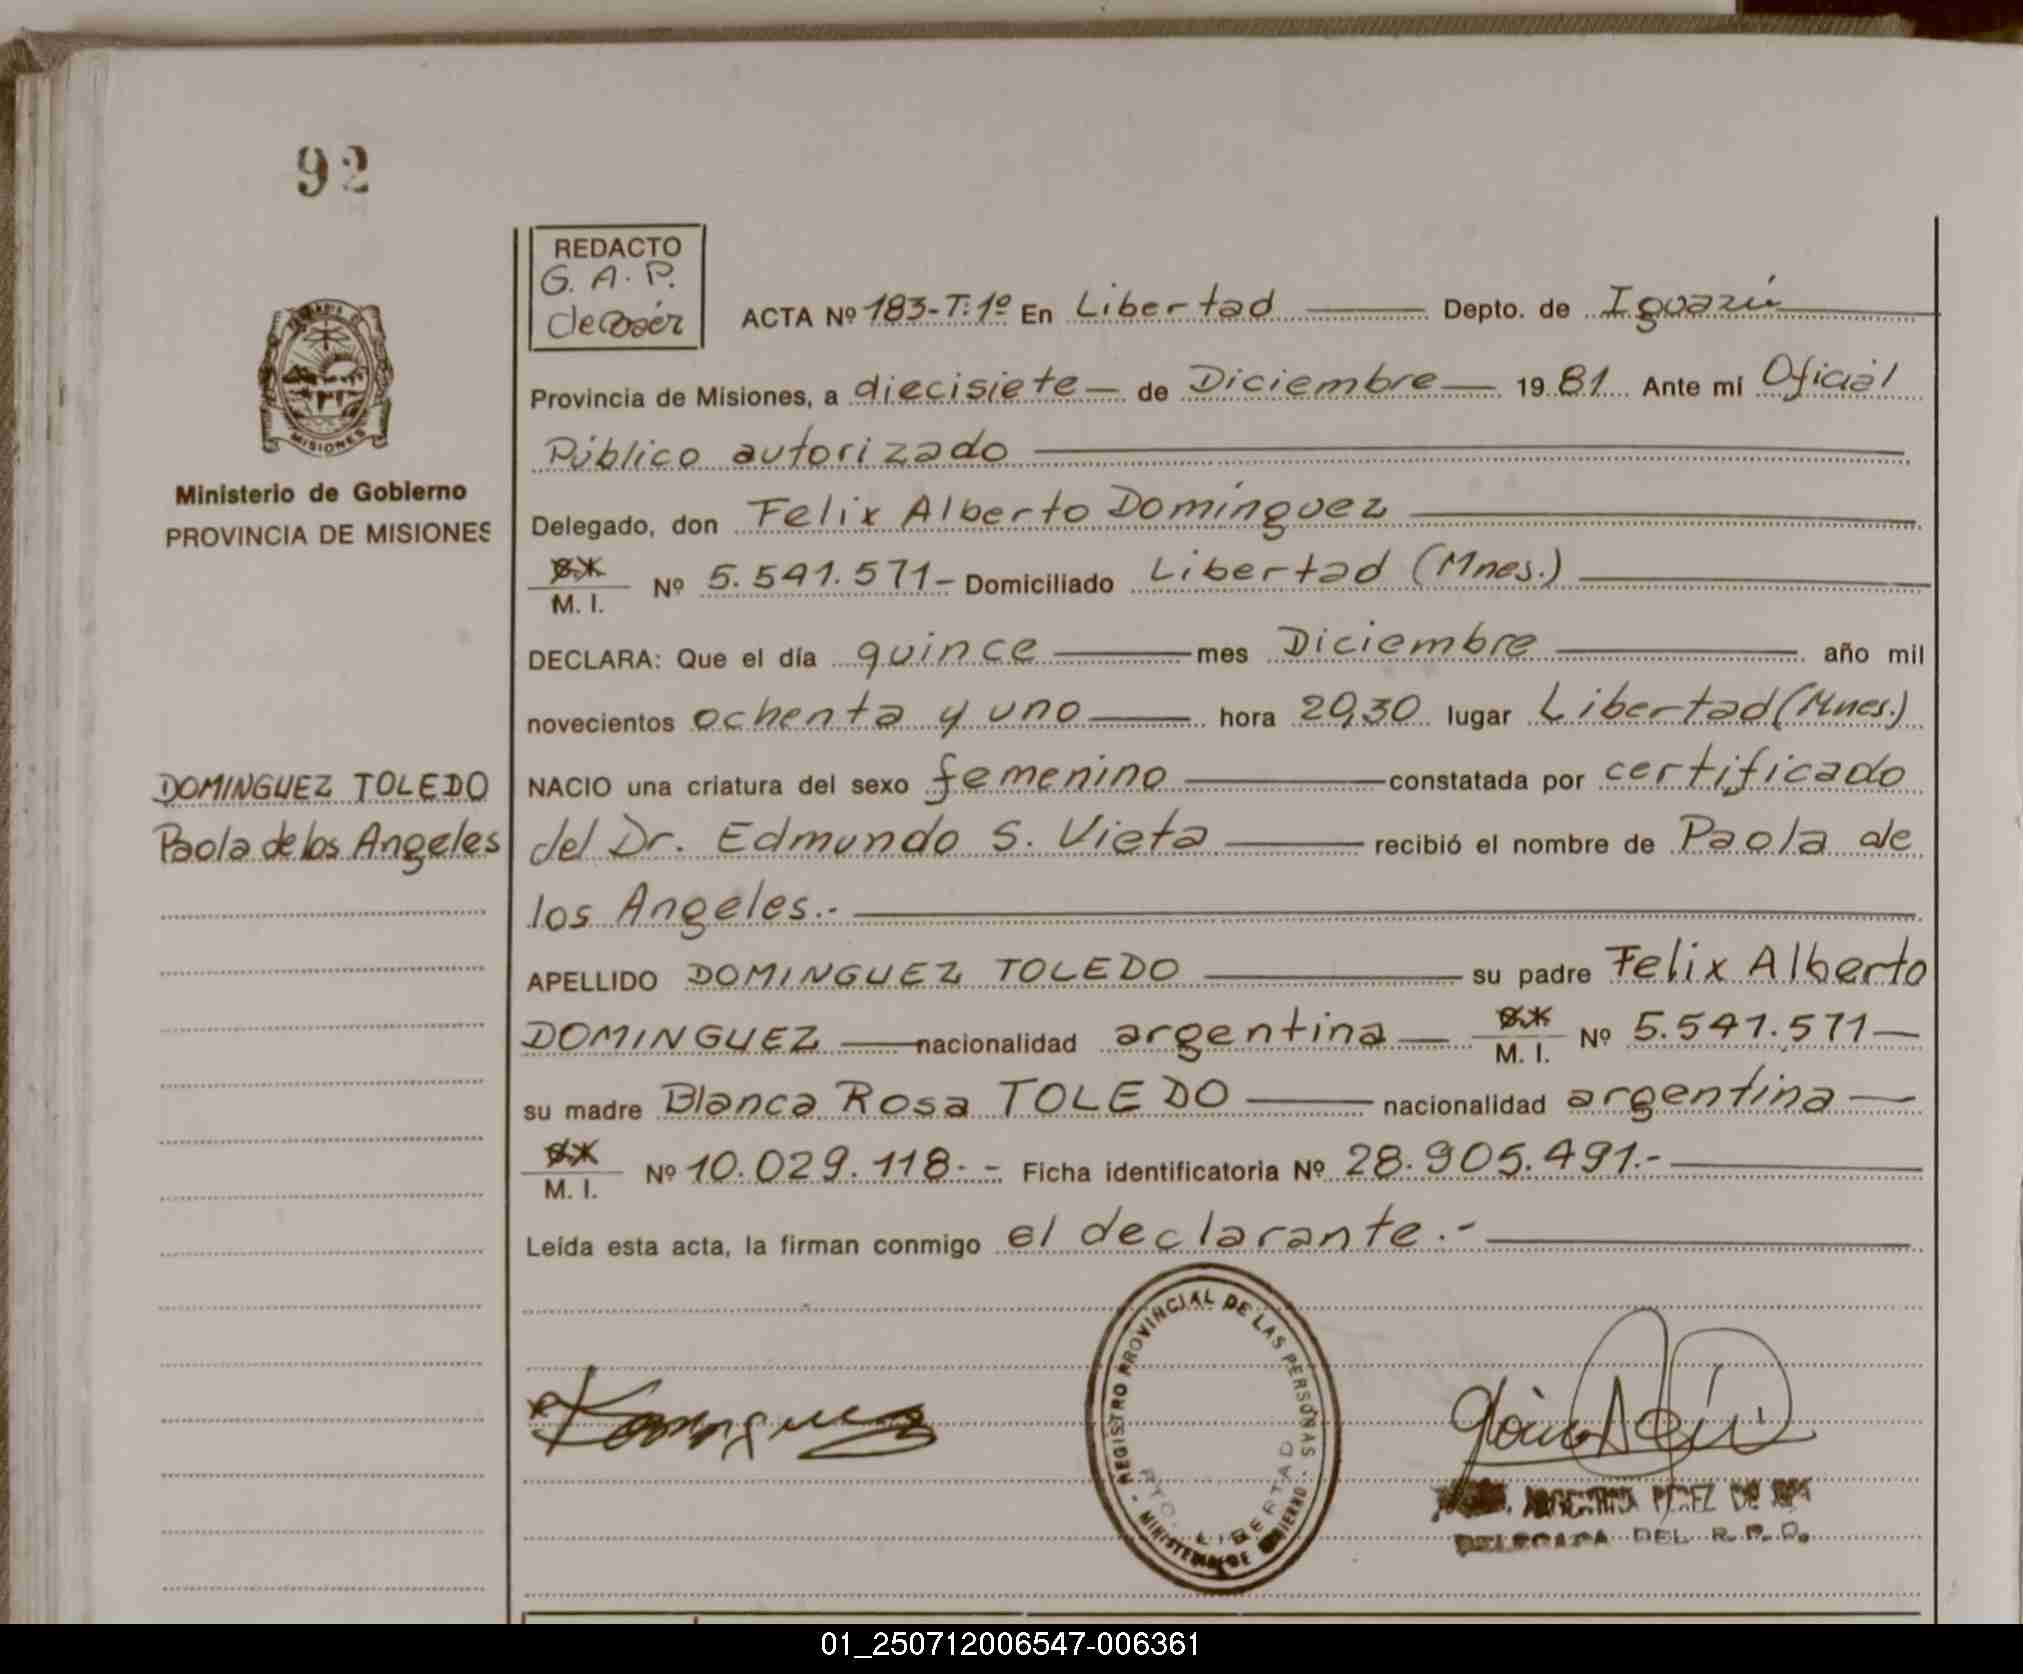 92
REDACTO
G. A. P.
de
ACTA Nº 183-T:1º En Libertad Depto. de Iguazú
Provincia de Misiones, a diecisiete de Diciembre 1981 Ante mí Oficial
Público autorizado
Ministerio de Gobierno
PROVINCIA DE MISIONES
MISIONES
Delegado, don Felix Alberto Domínguez
M. I. Nº 5.541.571- Domiciliado Libertad (Mnes.)
DECLARA: Que el día quince mes Diciembre año mil
novecientos ochenta y uno hora 20,30 lugar Libertad (Mnes.)
DOMINGUEZ TOLEDO
Paola de los Angeles
NACIO una criatura del sexo femenino constatada por certificado
del Dr. Edmundo S. Vieta recibió el nombre de Paola de
los Angeles.-
APELLIDO DOMINGUEZ TOLEDO su padre Felix Alberto
DOMINGUEZ nacionalidad argentina M. I. Nº 5.541.571-
su madre Blanca Rosa TOLEDO nacionalidad argentina
M. I. Nº 10.029.118.- Ficha identificatoria Nº 28.905.491.-
Leída esta acta, la firman conmigo el declarante.-
REGISTRO PROVINCIAL DE LAS PERSONAS
- MINISTERIO DE GOBIERNO -
LIBERTAD
ARGENTINA PEREZ DE
DELEGADA DEL R. P. P.
01_250712006547-006361